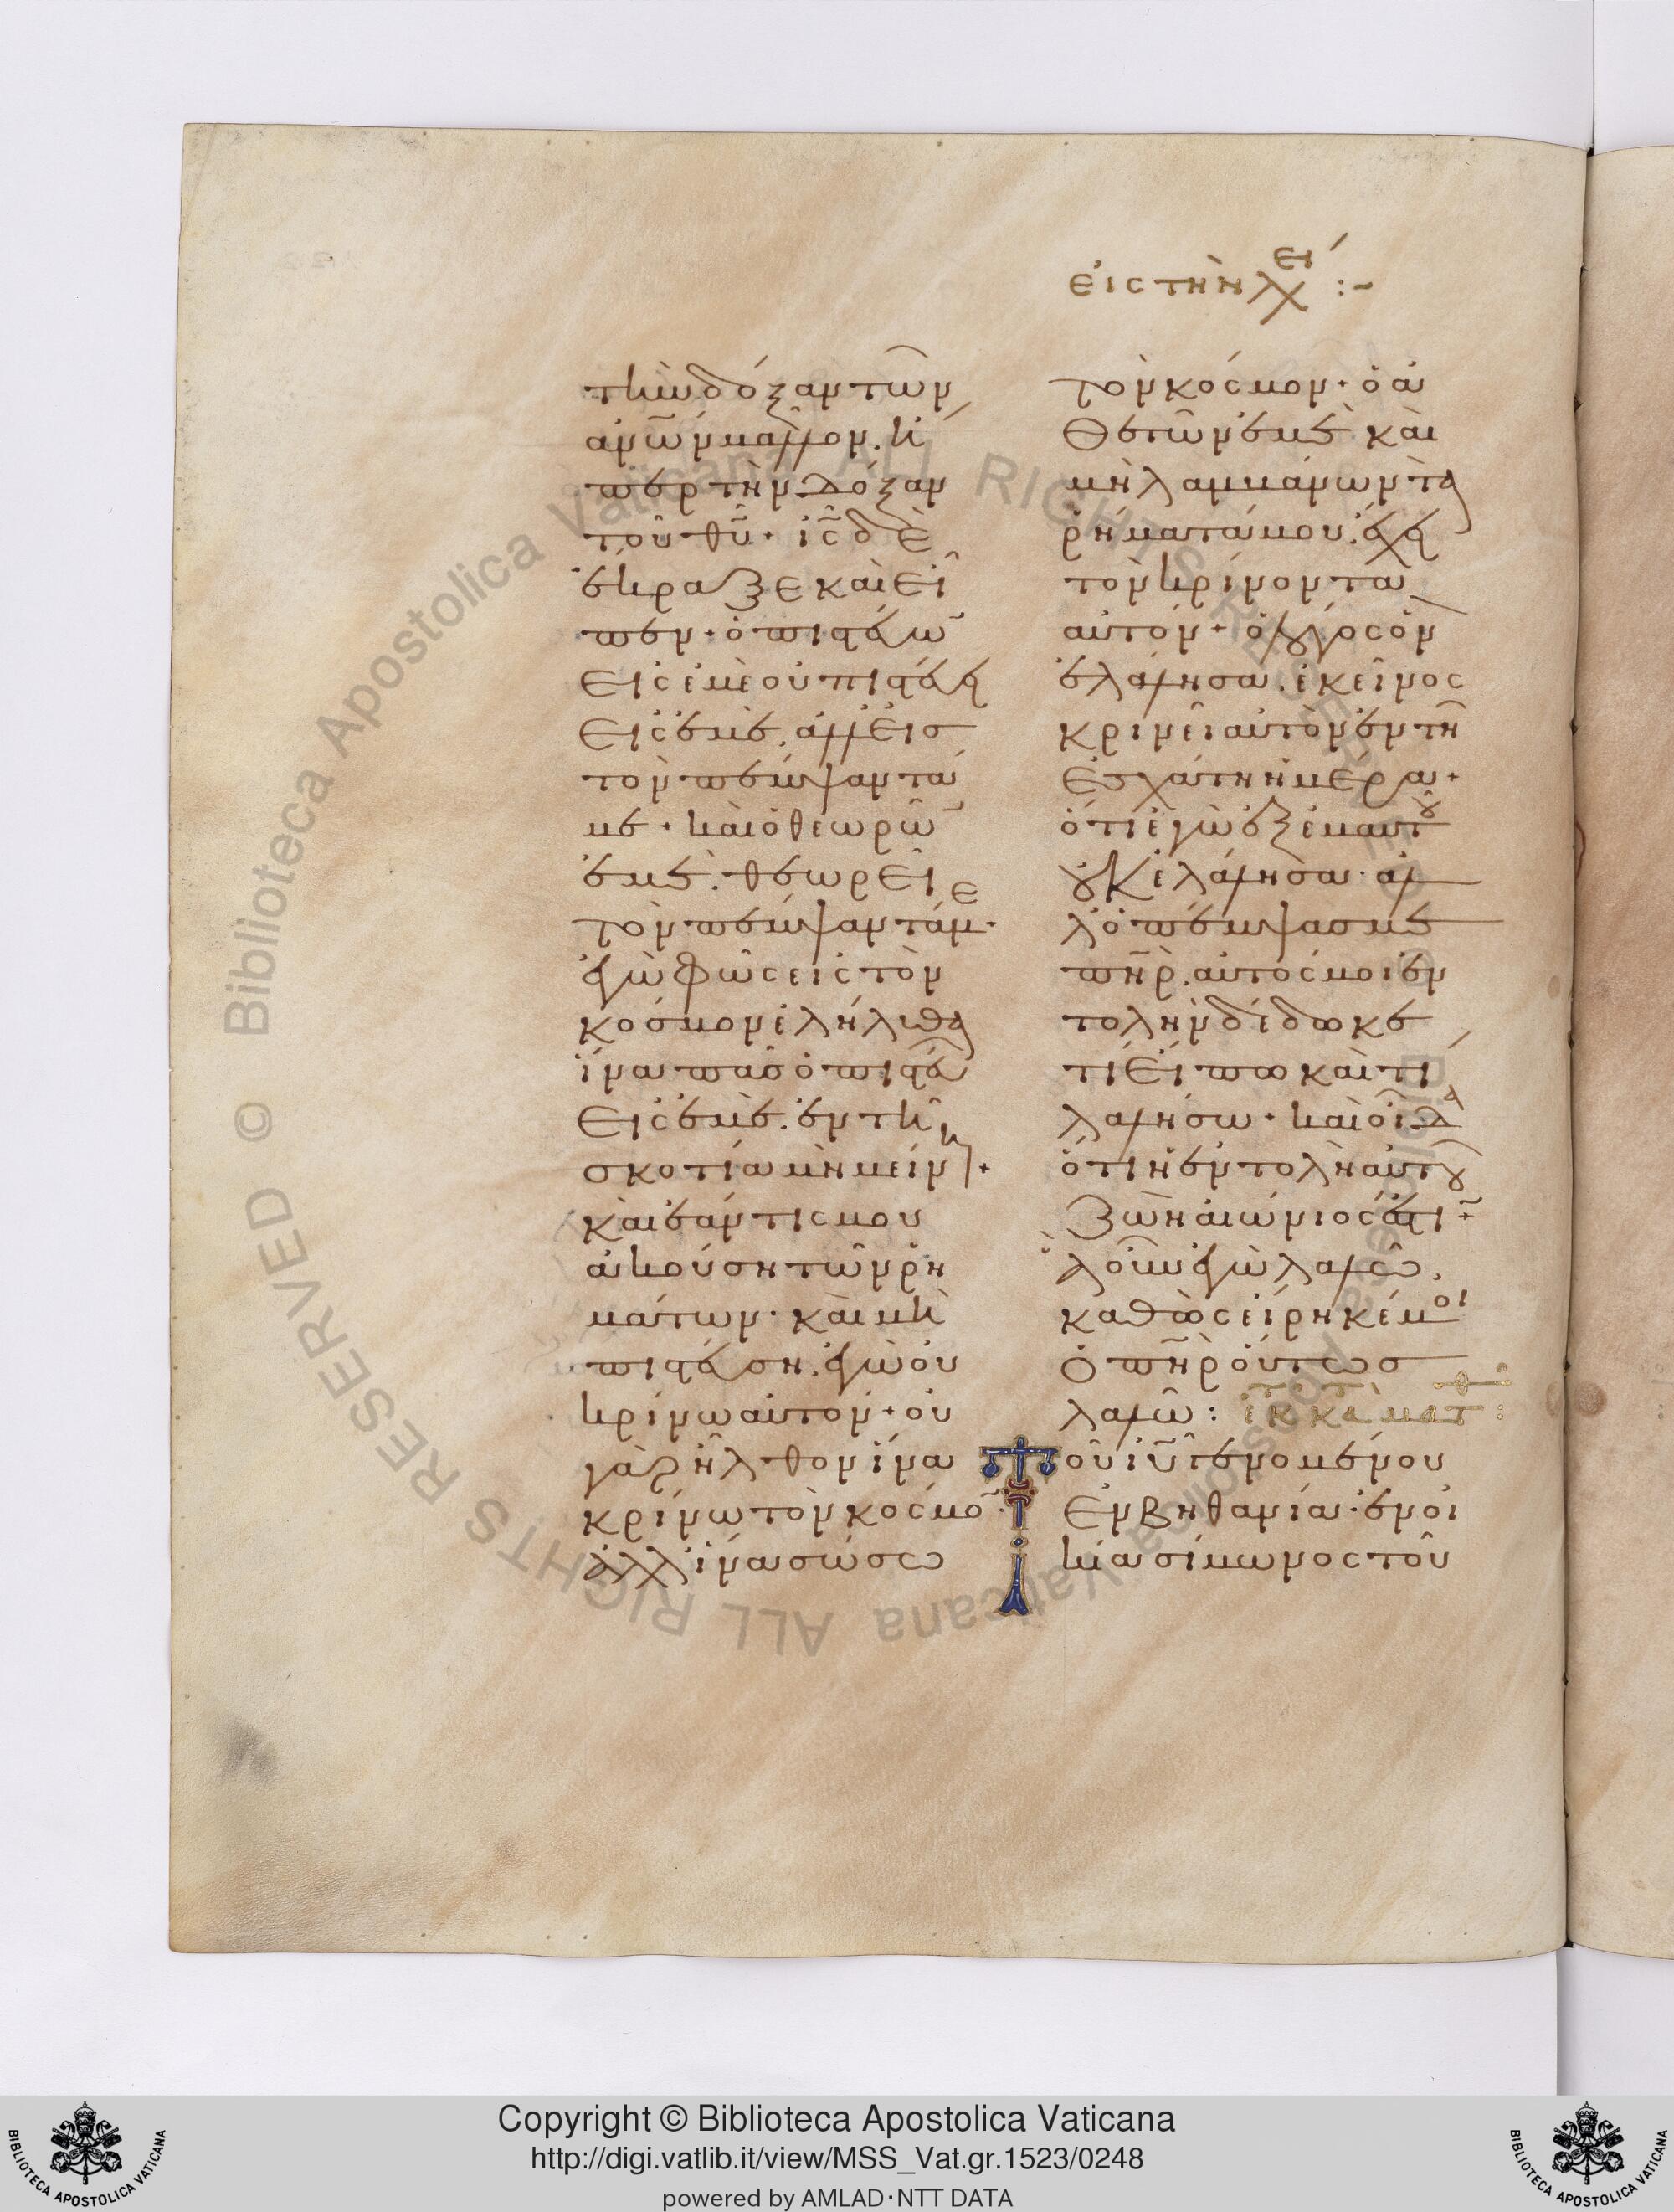 εἰς τὴν λχ ει :~
τὴν δόξαν τῶν
ἀνῶν μᾶλλον. ἤ
περ τὴν δόξαν
τοῦ θῦ· ἰς δὲ
ἔκραξε καὶ εἶ
πεν· ὁ πιστεύων
εἰς ἐμὲ οὐ πιστεύει
εἰς ἐμὲ. ἀλλ εἰς
τὸν πέμψαντά
με· καὶ ὁ θεωρῶν
ἐμὲ. θεωρεῖ
τὸν πέμψαντά με·
ἐγὼ φῶς εἰς τὸν
κόσμον ἐλήλυθα
ἵνα πᾶσ ὁ πιστεύων
εἰς ἐμὲ. ἐν τῆ
σκοτία μὴ μείνη·
καὶ ἐάν τις μου
ἀκούση τῶν ῥη
μάτων· καὶ μὴ
πιστεύση. ἐγὼ οὐ
κρίνω αὐτόν· οὐ
γὰρ ἦλθον ἵνα
κρίνω τὸν κόσμον·
ἀλλ ἵνα σώσω
τὸν κόσμον· ὁ ἀ
θετῶν ἐμὲ καὶ
μὴ λαμβάνων τὰ
ῥήματά μου. ἔχει
τὸν κρίνοντα
αὐτόν· ὁ λόγος ὃν
ἐλάλησα. ἐκεῖνος
κρινεῖ αὐτὸν ἐν τῆ
ἐσχάτη ἡμέρα·
ὅτι ἐγὼ ἐξ ἐμαυτοῦ
οὐκ ἐλάλησα· ἀλ
λ ὁ πέμψας με
πὴρ. αὐτός μοι ἐν
τολὴν δέδωκε
τί εἴπω καὶ τί
λαλήσω· καὶ οἶδα
ὅτι ἡ ἐντολὴ αὐτοῦ
ζωὴ αἰώνιος ἐστι·
ἃ οὖν ἐγὼ λαλῶ.
καθὼς εἴρηκέ μοι
ὁ πὴρ οὕτως
λαλῶ:
Τοῦ ἰυ γενομένου
ἐν βηθανία· ἐν οἰ
κία σίμωνος τοῦ
Biblioteca Apostolica Vaticana ALL RIGHTS RESERVED ©
Biblioteca Apostolica Vaticana ALL RIGHTS RESERVED ©
BIBLIOTECA APOSTOLICA VATICANA
Copyright © Biblioteca Apostolica Vaticana
http://digi.vatlib.it/view/MSS_Vat.gr.1523/0248
powered by AMLAD·NTT DATA
BIBLIOTECA APOSTOLICA VATICANA